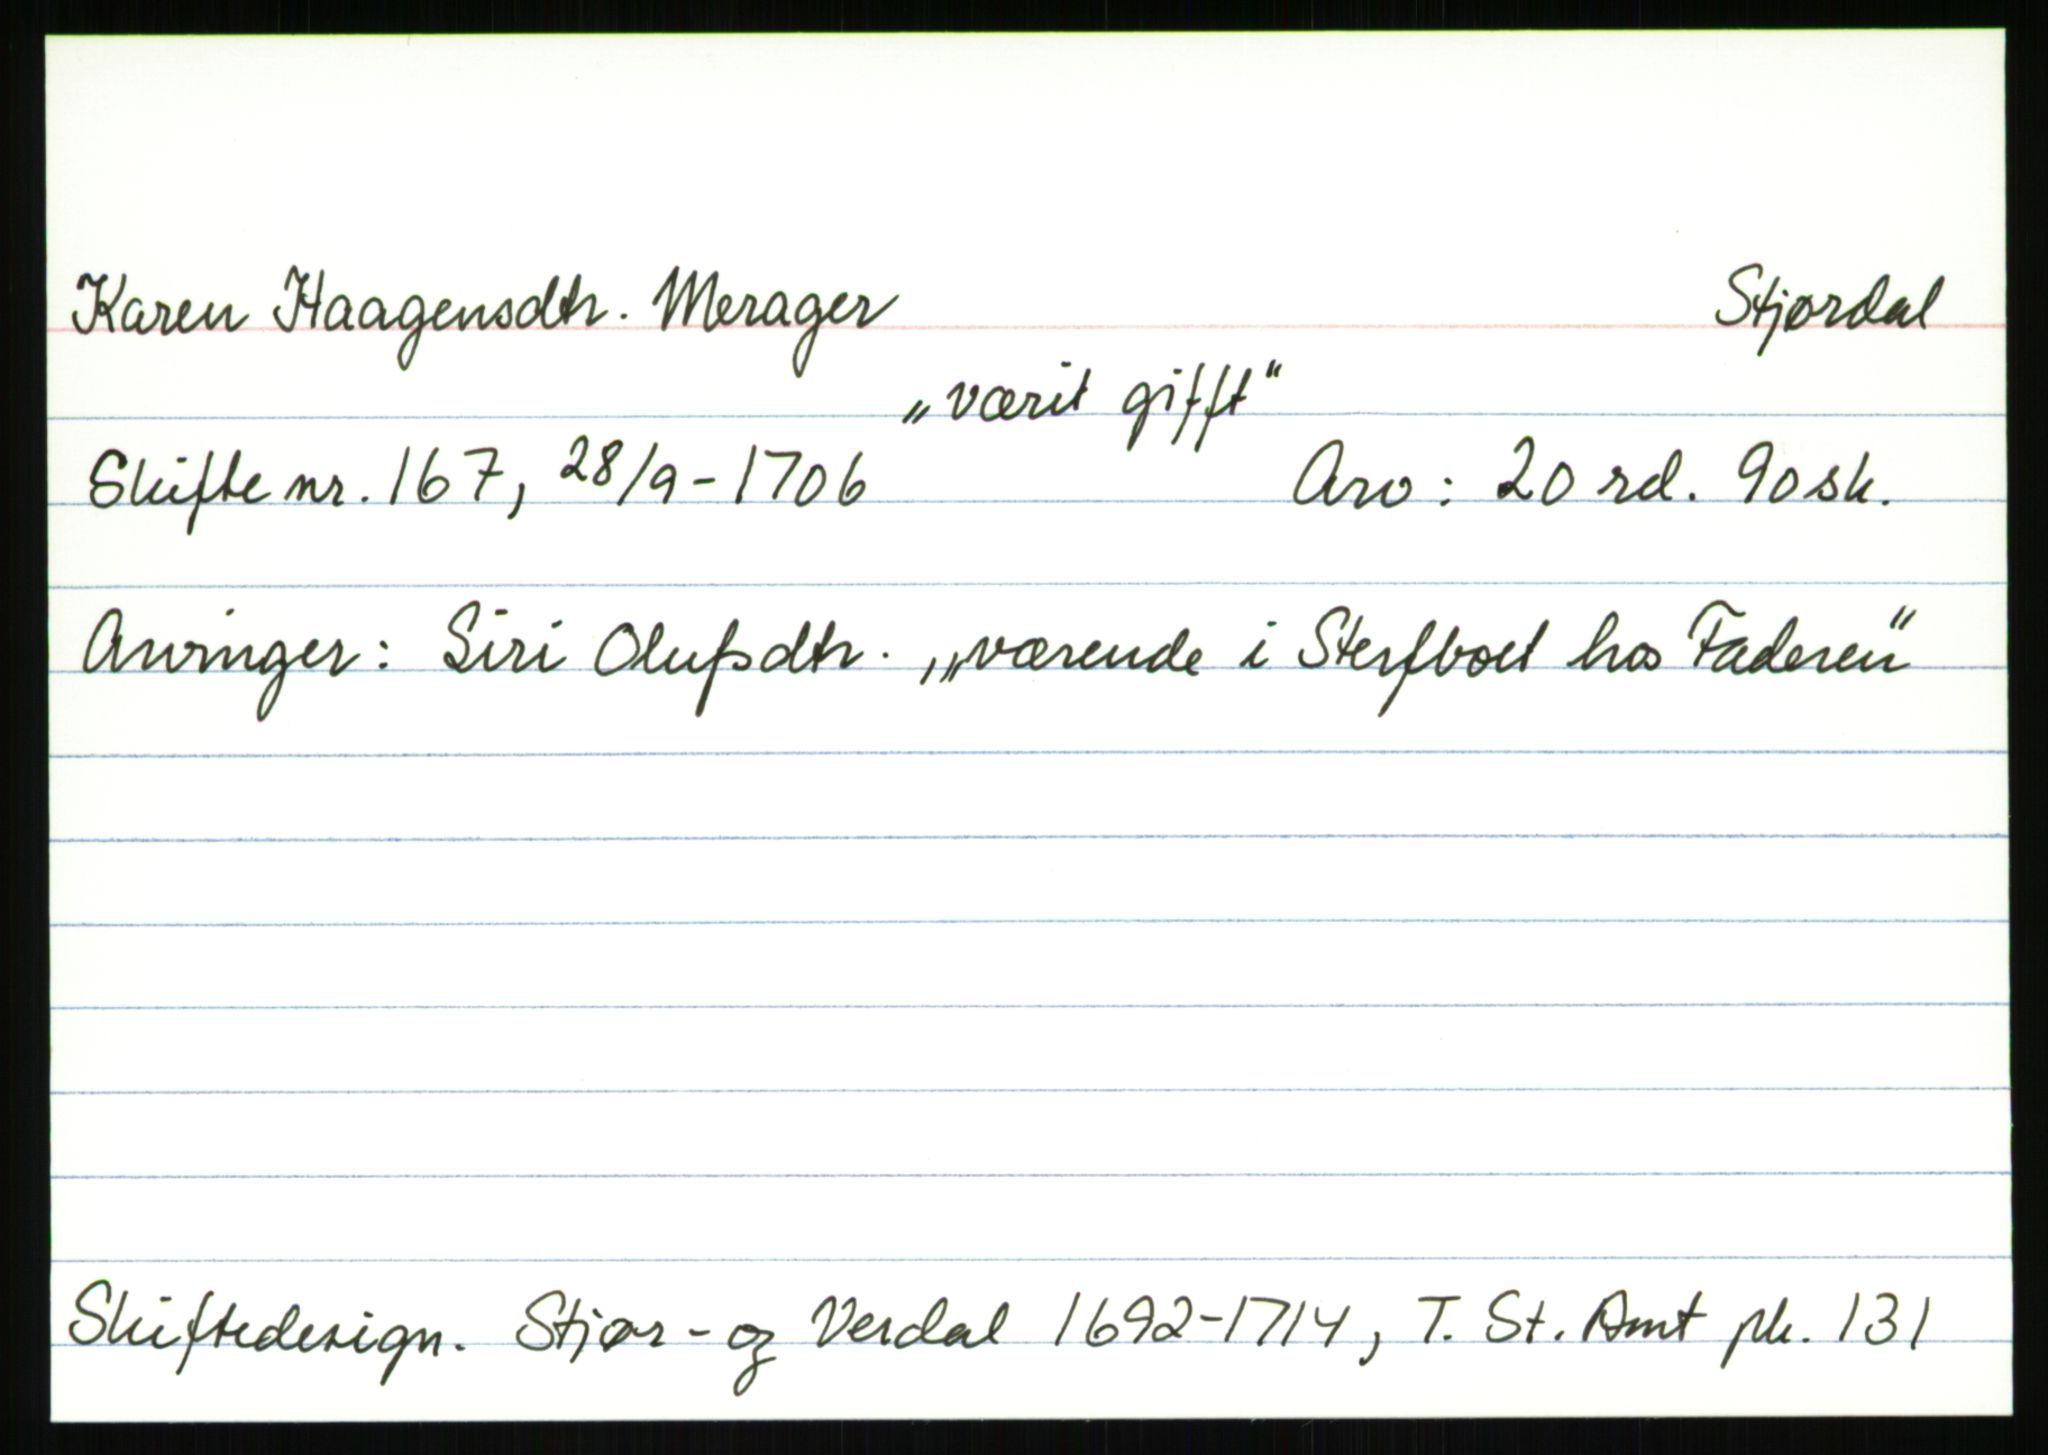 Karen Haagensdtr. Merager Stjørdal
„værit gifft“
Skifte nr. 167, 28/9-1706 Arv: 20 rd. 90 sk.
Arvinger: Siri Olufsdtr., „værende i Sterfboet hos Faderen“
Skiftedesign. Stjør- og Verdal 1692-1714, T. St. Amt pk. 131